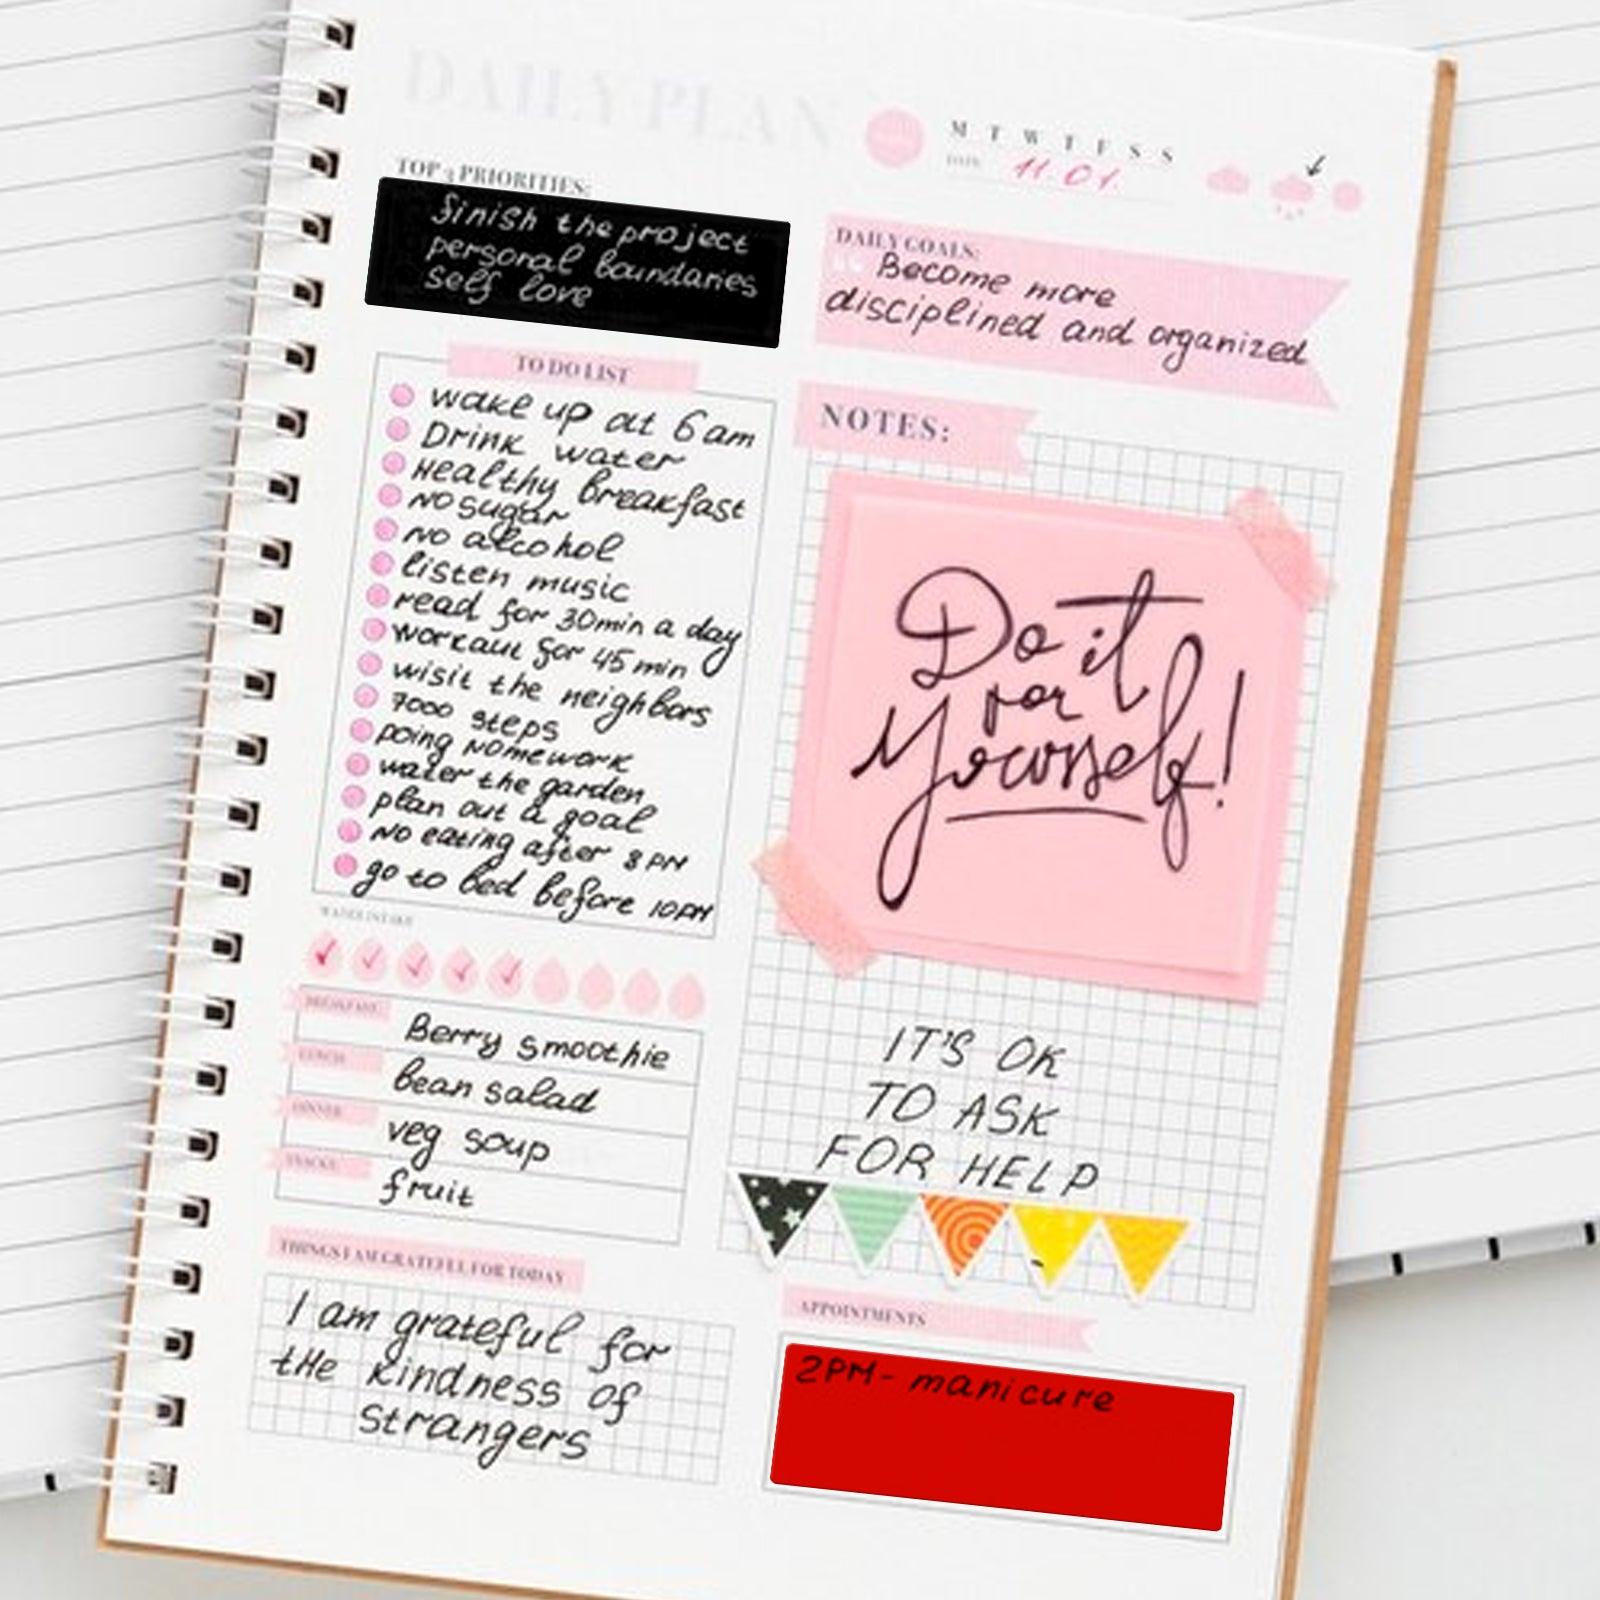 DAILY PLAN
M T W T F S S
DATE 11 01.
TOP 3 PRIORITIES:
finish the project
personal boundaries
self love
DAILY GOALS:
Become more
disciplined and organized
TO DO LIST
wake up at 6 am
Drink water
Healthy breakfast
No sugar
No alcohol
listen music
read for 30 min a day
workout for 45 min
wisit the neighbors
7000 steps
Doing Homework
water the garden
plan out a goal
No eating after 8 PM
go to bed before 10 PM
WATER INTAKE
BREAKFAST:
Berry smoothie
LUNCH:
bean salad
DINNER:
veg soup
SNACKS:
fruit
THINGS I AM GRATEFUL FOR TODAY
I am grateful for
tHe kindness of
strangers
NOTES:
Do it
for
Yourself!
IT'S OK
TO ASK
FOR HELP
APPOINTMENTS
2PM- manicure